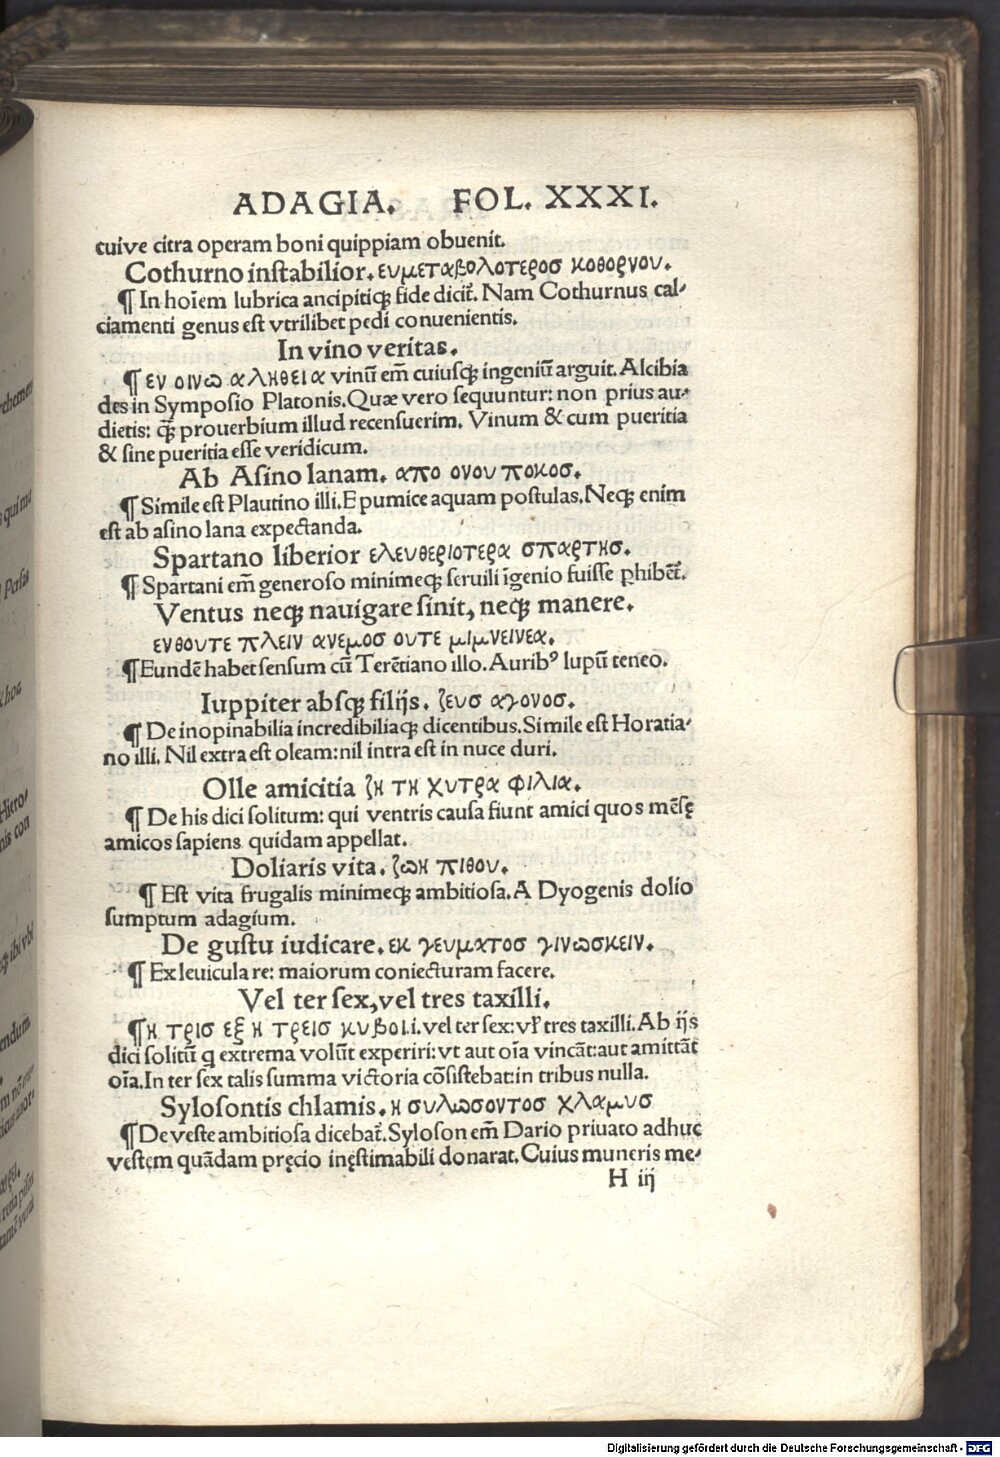 ADAGIA. FOL. XXXI.
cuive citra operam boni quippiam obuenit.
Cothurno instabilior. ευμεταβολοτεροσ κοθορνου.
¶ In hoīem lubrica ancipitiqꝫ fide dicit̃. Nam Cothurnus cal-
ciamenti genus est vtrilibet pedi conuenientis.
In vino veritas.
¶ εν οινω αληθεια vinū em̄ cuiusqꝫ ingeniū arguit. Alcibia
des in Symposio Platonis. Quæ vero sequuntur: non prius au-
dietis: q̃ꝫ prouerbium illud recensuerim. Vinum & cum pueritia
& sine pueritia esse veridicum.
Ab Asino lanam. απο ονου ποκοσ.
¶ Simile est Plautino illi. E pumice aquam postulas. Neqꝫ enim
est ab asino lana expectanda.
Spartano liberior ελευθεριοτερα σπαρτησ.
¶ Spartani em̄ generoso minimeqꝫ seruili īgenio fuisse ꝑhibēt̃.
Ventus neqꝫ nauigare sinit, neqꝫ manere.
ενθουτε πλειν ανεμοσ ουτε μιμνεινεα.
¶ Eundē habet sensum cū Terētiano illo. Auribꝰ lupū teneo.
Iuppiter absqꝫ filijs. ζευσ αγονοσ.
¶ De inopinabilia incredibiliaqꝫ dicentibus. Simile est Horatia-
no illi. Nil extra est oleam: nil intra est in nuce duri.
Olle amicitia ζη τη χυτρα φιλια.
¶ De his dici solitum: qui ventris causa fiunt amici quos mēsę
amicos sapiens quidam appellat.
Doliaris vita. ζωη πιθου.
¶ Est vita frugalis minimeqꝫ ambitiosa. A Dyogenis dolio
sumptum adagium.
De gustu iudicare. εκ γευματοσ γινωσκειν.
¶ Ex leuicula re: maiorum coniecturam facere.
Vel ter sex, vel tres taxilli.
¶ η τρισ εξ η τρεισ κυβοι. i. vel ter sex: vl̓ tres taxilli. Ab ijs
dici solitū q extrema volūt experiri: vt aut oīa vincāt: aut amittāt
oīa. In ter sex talis summa victoria cōsistebat: in tribus nulla.
Sylosontis chlamis. η συλωσοντοσ χλαμυσ
¶ De veste ambitiosa dicebat̃. Syloson em̄ Dario priuato adhuc
vestem quādam pręcio inęstimabili donarat. Cuius muneris me-
H iij
Digitalisierung gefördert durch die Deutsche Forschungsgemeinschaft - DFG